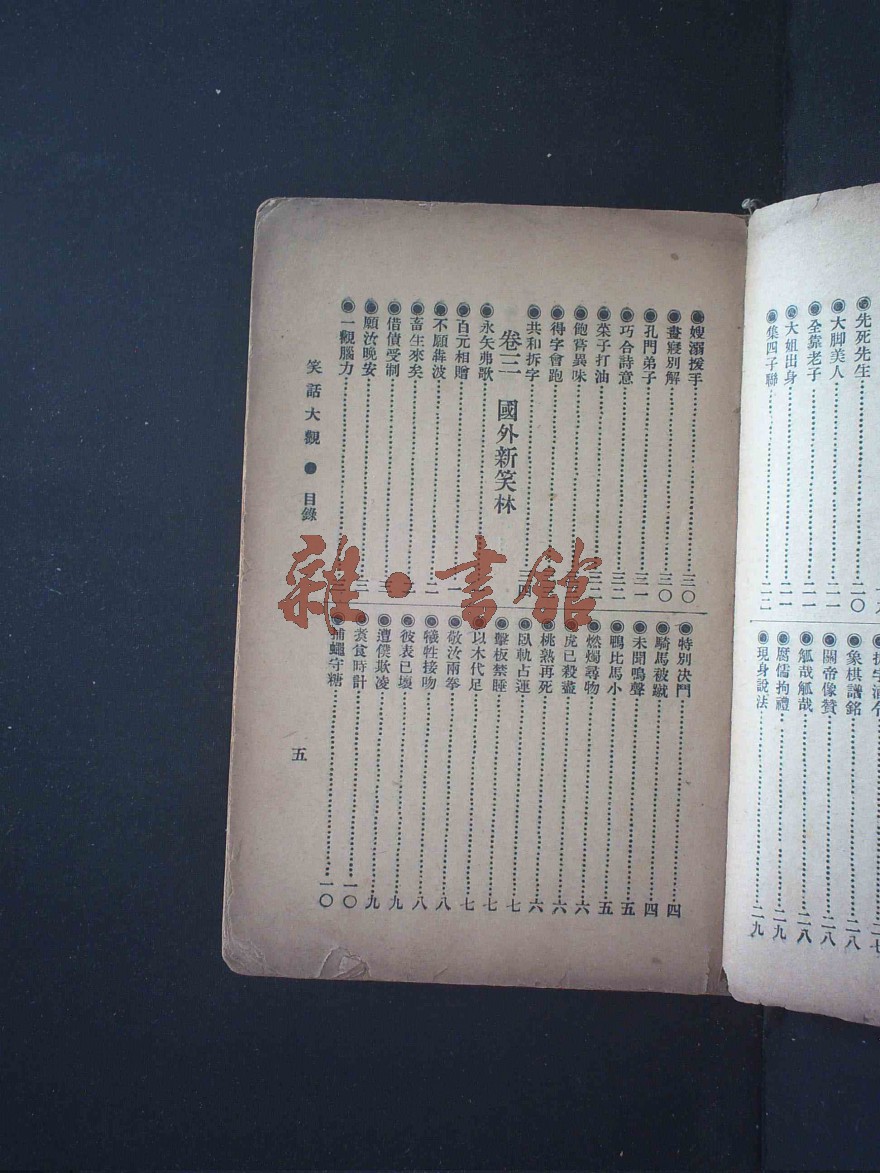 先死先生……二〇
大脚美人……二一
全靠老子……二一
大姐出身……二一
集四子聯……二二
象棋譜銘……二八
關帝像贊……二八
觚哉觚哉……二八
腐儒拘禮……二九
現身說法……二九
嫂溺援手……三〇
晝寢別解……三〇
孔門弟子……三一
巧合詩意……三二
菜子打油……三二
飽嘗異味
得字會跑
共和拆字……三四
卷三 國外新笑林
永矢弗歌
百元相贈……一
不願犇波……二
畜生來矣……二
借債受制
願汝晚安
一觀腦力
特別決鬥……四
騎馬被蹴……四
未聞鳴聲……五
鴨比馬小……五
燃燭尋物……六
虎已殺盡……六
桃熟再死……六
臥軌占運……七
擊板禁睡……七
以木代足……七
敬汝兩拳……八
犧牲接吻……八
彼表已壞……九
遭僕欺凌……九
煑食時計……一〇
捕蠅守糖……一〇
笑話大觀 ● 目錄
五
雜·書館